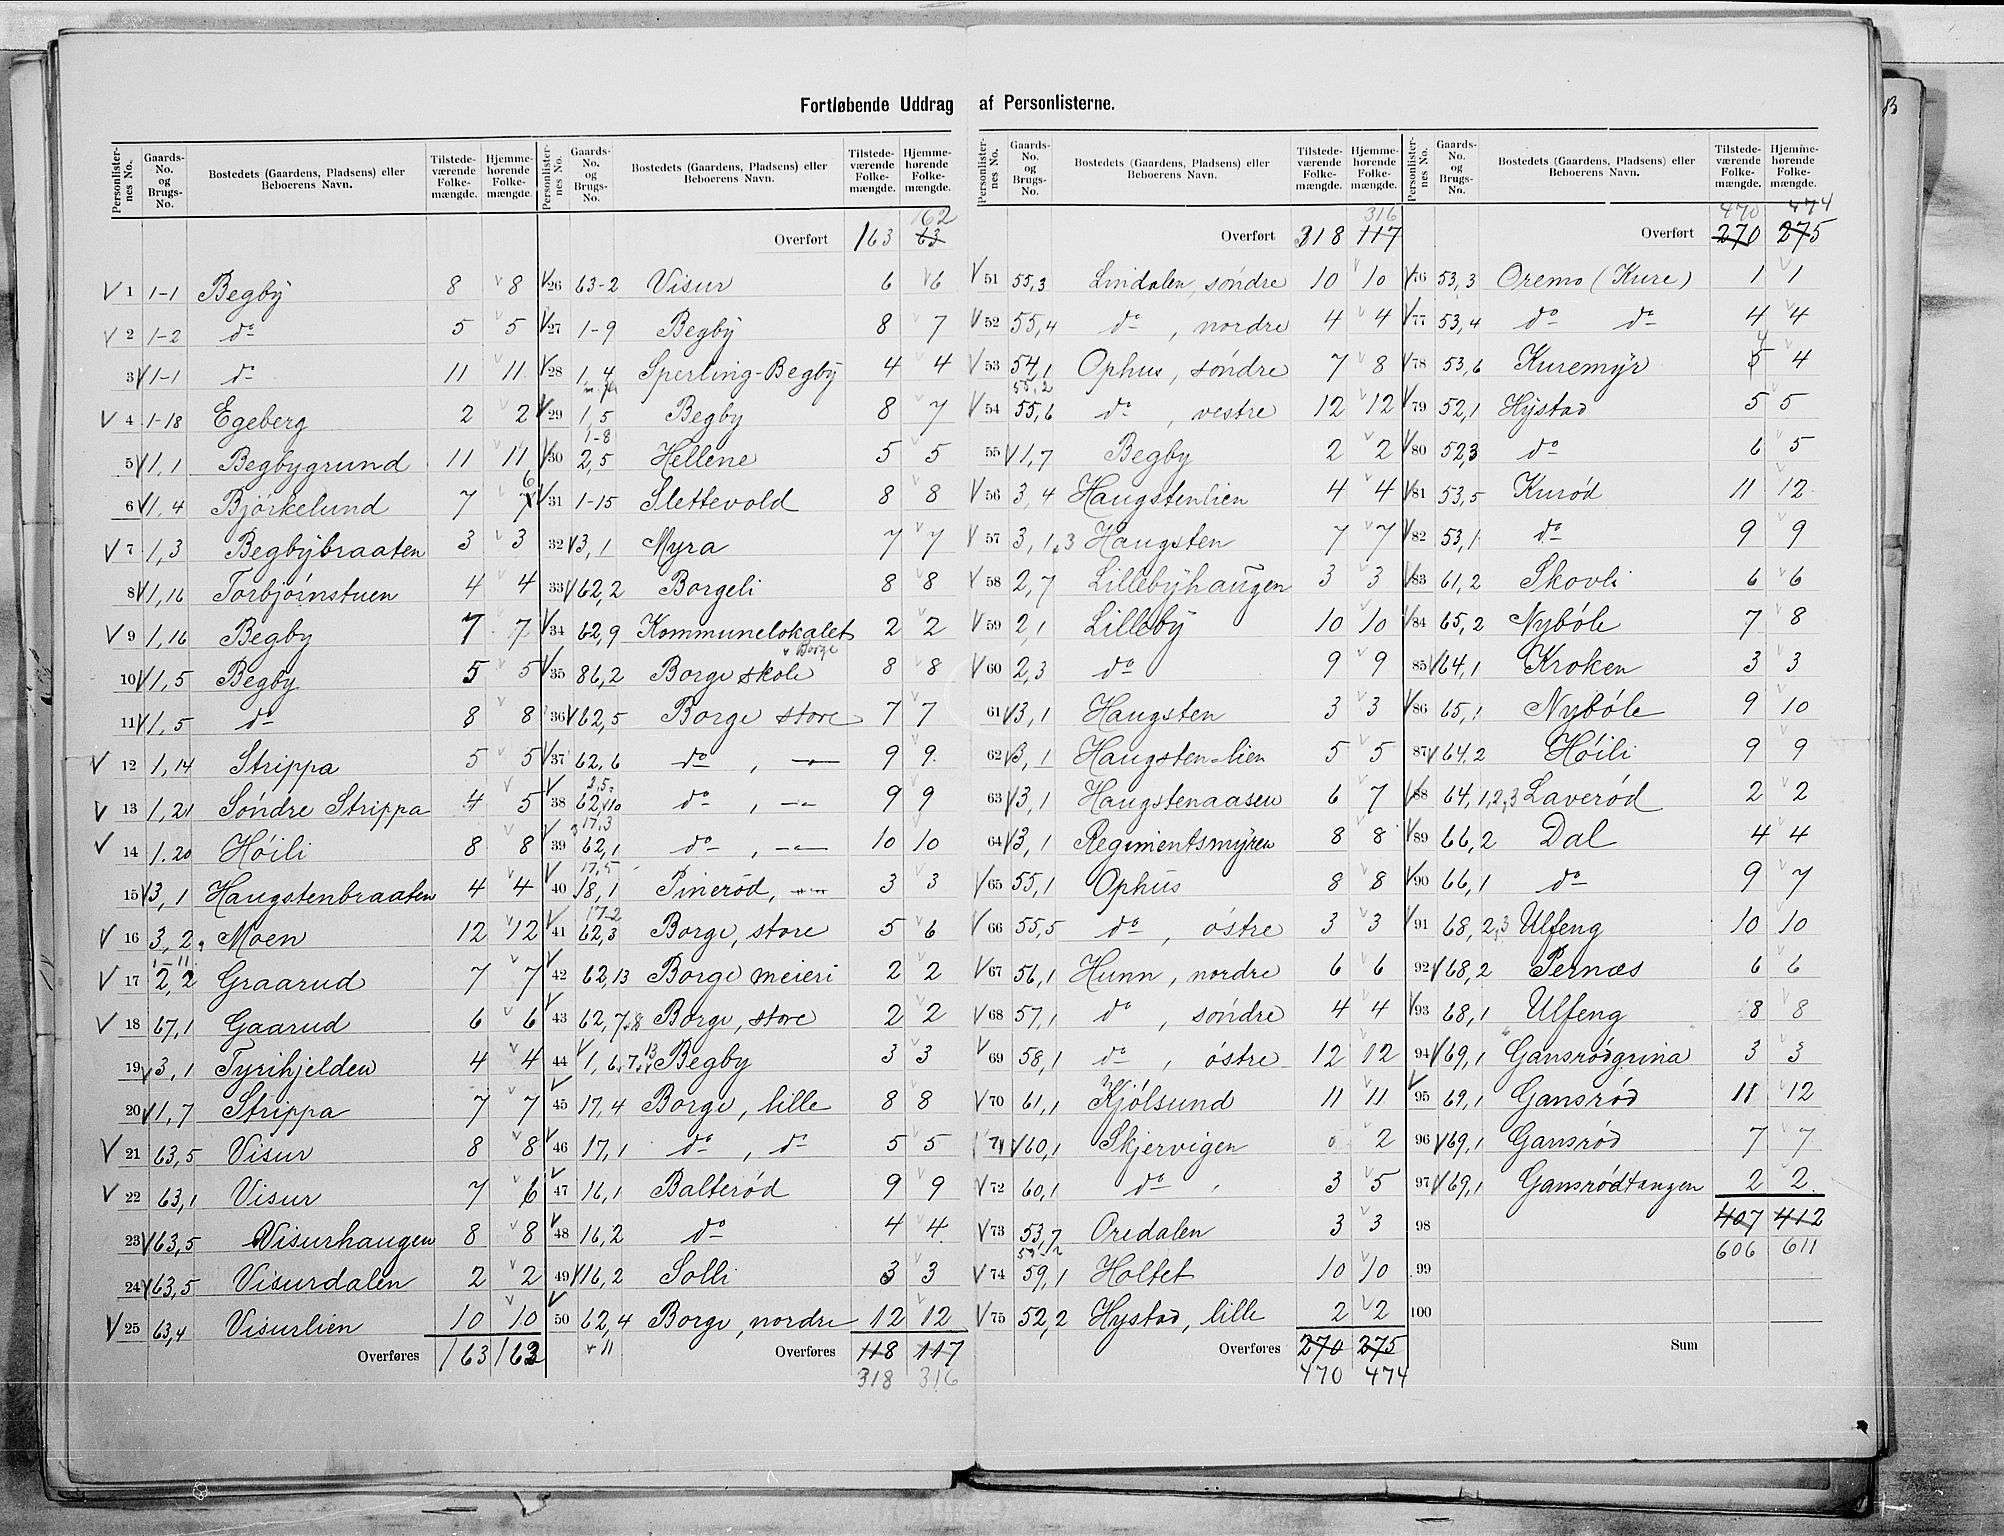 Fortløbende Uddrag af Personlisterne.
Personlister-nes No. | Gaards-No. og Brugs-No. | Bostedets (Gaardens, Pladsens) eller Beboerens Navn. | Tilstede-værende Folke-mængde. | Hjemme-hørende Folke-mængde.
V 1 1-1 Begby 8 8
V 2 1-2 do 5 5
3 V 1-1 do 11 11
V 4 1-18 Egeberg 2 2
5 V 1,1 Begbygrund 11 11
6 V 1,4 Björkelund 7 7 6
V 7 1,3 Begbybraaten 3 3
8 V 1,16 Torbjörnstuen 4 4
V 9 1,16 Begby 7 7
10 V 1,5 Begby 5 5
11 V 1,5 do 8 8
V 12 1,14 Strippa 5 5
V 13 1,21 Söndre Strippa 4 5
V 14 1.20 Höili 8 8
15 V 3,1 Haugstenbraaten 4 4
V 16 3,2 Moen 12 12
1-11
V 17 2,2 Graarud 7 7
V 18 67,1 Gaarud 6 6
19 V 3,1 Tyrihjelden 4 4
20 V 1,7 Strippa 7 7
V 21 63,5 Visur 8 8
V 22 63,1 Visur 7 6
23 V 63,5 Visurhaugen 8 8
24 V 63,5 Visurdalen 2 2
V 25 63,4 Visurlien 10 10
Overføres 163 162
Personlister-nes No. | Gaards-No. og Brugs-No. | Bostedets (Gaardens, Pladsens) eller Beboerens Navn. | Tilstede-værende Folke-mængde. | Hjemme-hørende Folke-mængde.
162
Overført 163 63
V 26 63-2 Visur 6 6
V 27 1-9 Begby 8 7
V 28 1,4 Sperling-Begby 4 4
V 29 1,5 Begby 8 7
1-8
V 30 2,5 Hellene 5 5
V 31 1-15 Slettevold 8 8
32 V 3,1 Myra 7 7
33 V 62,2 Borgeli 8 8
V 34 62,9 Kommunelokalet 2 2
v Borge
V 35 86,2 Borge skole 8 8
36 V 62,5 Borge store 7 7
V 37 62,6 do , — 9 9
2,5
V 38 62,10 do , — 9 9
17,3
V 39 62,1 do , — 10 10
17,5
V 40 18,1 Pinerød, — 3 3
17-2
V 41 62,3 Borge, store 5 6
V 42 62,13 Borge meieri 2 2
V 43 62,7,8 Borge, store 2 2
V 44 1,6,7,13 Begby 3 3
V 45 17,4 Borge, lille 8 8
V 46 17,1 do , do 5 5
V 47 16,1 Balterød 9 9
V 48 16,2 do 4 4
49 V 16,2 Solli 3 3
V 50 62,4 Borge, nordre 12 12
v 11 Overføres 118 117
318 316
Personlister-nes No. | Gaards-No. og Brugs-No. | Bostedets (Gaardens, Pladsens) eller Beboerens Navn. | Tilstede-værende Folke-mængde. | Hjemme-hørende Folke-mængde.
316
Overført 318 117
V 51 55,3 Lindalen, söndre 10 10
V 52 55,4 do , nordre 4 4
V 53 54,1 Ophus, söndre 7 8
55,2
V 54 55,6 do , vestre 12 12
55 V 1,7 Begby 2 2
V 56 3,4 Haugstenlien 4 4
V 57 3,1,3 Haugsten 7 7
V 58 2,7 Lillebyhaugen 3 3
V 59 2,1 Lilleby 10 10
V 60 2,3 do 9 9
61 V 3,1 Haugsten 3 3
62 V 3,1 Haugsten-lien 5 5
63 V 3,1 Haugstenaasen 6 7
64 V 3,1 Regimentsmyren 8 8
V 65 55,1 Ophus 8 8
V 66 55,5 do , östre 3 3
V 67 56,1 Hunn, nordre 6 6
V 68 57,1 do , söndre 4 4
V 69 58,1 do , östre 12 12
V 70 61,1 Kjölsund 11 11
71 V 60,1 Skjervigen 0 2
V 72 60,1 do 3 5
V 73 53,7 Oredalen 3 3
V 74 59,1 Holtet 10 10
V 75 52,2 Hystad, lille 2 2
Overføres 270 275
470 474
Personlister-nes No. | Gaards-No. og Brugs-No. | Bostedets (Gaardens, Pladsens) eller Beboerens Navn. | Tilstede-værende Folke-mængde. | Hjemme-hørende Folke-mængde.
470 474
Overført 270 275
V 76 53,3 Oremo (Kure) 1 1
V 77 53,4 do do 4 4
V 78 53,6 Kuremyr 5 4 4
V 79 52,1 Hystad 5 5
V 80 52,3 do 6 5
V 81 53,5 Kurød 11 12
V 82 53,1 do 9 9
V 83 61,2 Skovli 6 6
V 84 65,2 Nyböle 7 8
85 V 64,1 Kroken 3 3
V 86 65,1 Nyböle 9 10
87 V 64,2 Höili 9 9
V 88 64,1,2,3 Laverød 2 2
V 89 66,2 Dal 4 4
V 90 66,1 do 9 7
V 91 68,2,3 Ulfeng 10 10
92 V 68,2 Pernæs 6 6
V 93 68,1 Ulfeng 8 8
94 V 69,1 Gansrødgrina 3 3
V 95 69,1 Gansrød 11 12
96 V 69,1 Gansrød 7 7
97 V 69,1 Gansrødtangen 2 2
98 407 412
606 611
99
100
Sum